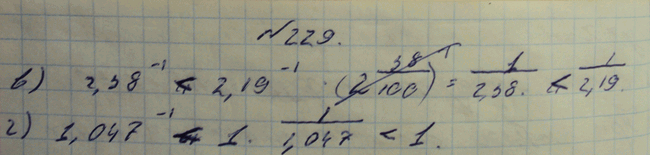 №229.
в) 2,38⁻¹ < 2,19⁻¹. (2 38/100)⁻¹ = 1/2,38. < 1/2,19.
г) 1,047⁻¹ < 1. 1/1,047 < 1.